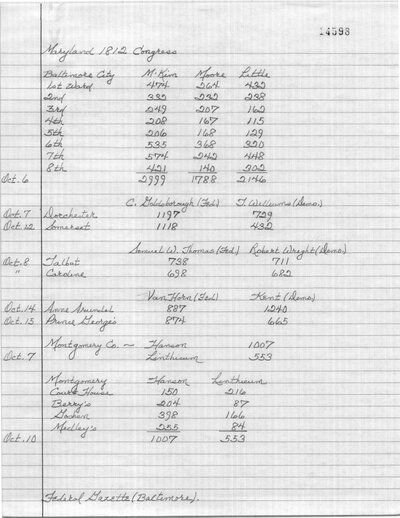 14598
Maryland 1812 Congress
Baltimore City McKim Moore Little
1st Ward 474 264 432
2nd 332 232 238
3rd 249 207 162
4th 208 167 115
5th 206 168 129
6th 535 368 320
7th 574 242 448
8th 421 140 302
Oct. 6 2999 1788 2146
C. Goldsborough (Fed) T. Williams (Demo.)
Oct. 7 Dorchester 1197 729
Oct. 12 Somerset 1118 432
Samuel W. Thomas (Fed) Robert Wright (Demo.)
Oct. 8 Talbot 738 711
" Caroline 698 682
Van Horn (Fed) Kent (Demo)
Oct. 14 Anne Arundel 887 1240
Oct. 13 Prince George's 874 665
Montgomery Co. ~ Hanson 1007
Oct. 7 Linthicum 553
Montgomery Hanson Linthicum
Court House 150 216
Berry's 204 87
Goshen 398 166
Medley's 255 84
Oct. 10 1007 553
Federal Gazette (Baltimore).